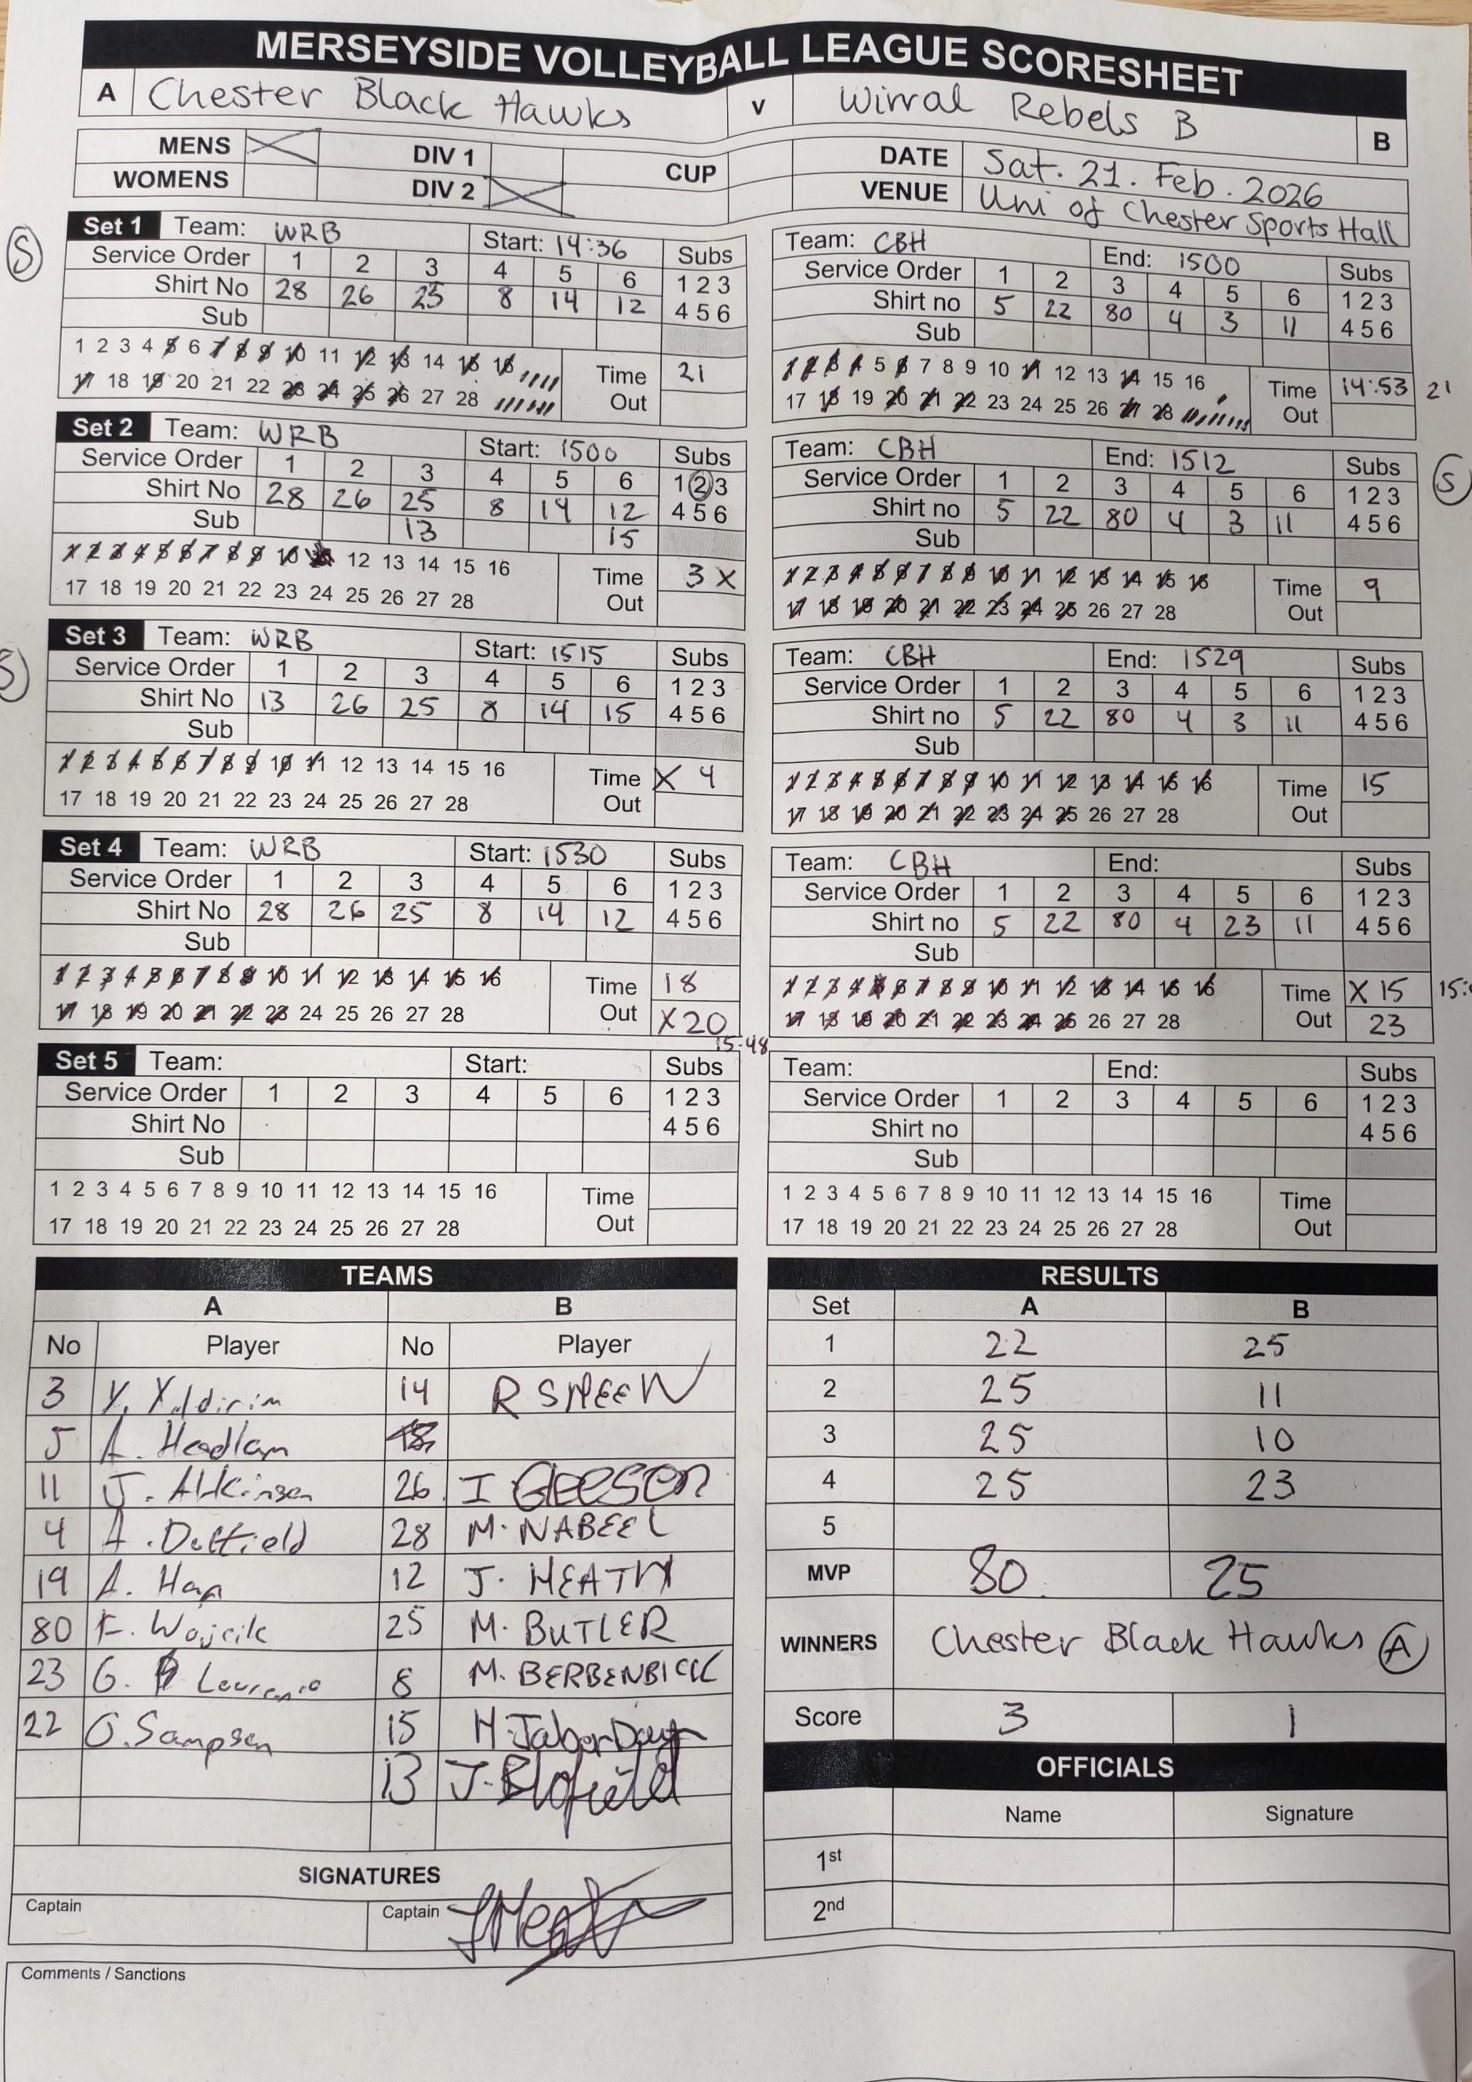 MERSEYSIDE VOLLEYBALL LEAGUE SCORESHEET
A Chester Black Hawks v Wirral Rebels B B
MENS DIV 1 CUP DATE Sat. 21. Feb. 2026
WOMENS DIV 2 VENUE Uni of Chester Sports Hall
S
Set 1 Team: WRB Start: 14:36 Subs
Service Order 1 2 3 4 5 6 1 2 3
Shirt No 28 26 25 8 14 12 4 5 6
Sub
1 2 3 4 5 6 7 8 9 10 11 12 13 14 15 16 Time 21
17 18 19 20 21 22 23 24 25 26 27 28 Out
Team: CBH End: 1500 Subs
Service Order 1 2 3 4 5 6 1 2 3
Shirt no 5 22 80 4 3 11 4 5 6
Sub
1 2 3 4 5 6 7 8 9 10 11 12 13 14 15 16 Time 14:53 21
17 18 19 20 21 22 23 24 25 26 27 28 Out
Set 2 Team: WRB Start: 1500 Subs
Service Order 1 2 3 4 5 6 1 2 3
Shirt No 28 26 25 8 14 12 4 5 6
Sub 13 15
1 2 3 4 5 6 7 8 9 10 11 12 13 14 15 16 Time 3 X
17 18 19 20 21 22 23 24 25 26 27 28 Out
Team: CBH End: 1512 Subs
S
Service Order 1 2 3 4 5 6 1 2 3
Shirt no 5 22 80 4 3 11 4 5 6
Sub
1 2 3 4 5 6 7 8 9 10 11 12 13 14 15 16 Time 9
17 18 19 20 21 22 23 24 25 26 27 28 Out
S
Set 3 Team: WRB Start: 1515 Subs
Service Order 1 2 3 4 5 6 1 2 3
Shirt No 13 26 25 8 14 15 4 5 6
Sub
1 2 3 4 5 6 7 8 9 10 11 12 13 14 15 16 Time X 4
17 18 19 20 21 22 23 24 25 26 27 28 Out
Team: CBH End: 1529 Subs
Service Order 1 2 3 4 5 6 1 2 3
Shirt no 5 22 80 4 3 11 4 5 6
Sub
1 2 3 4 5 6 7 8 9 10 11 12 13 14 15 16 Time 15
17 18 19 20 21 22 23 24 25 26 27 28 Out
Set 4 Team: WRB Start: 1530 Subs
Service Order 1 2 3 4 5 6 1 2 3
Shirt No 28 26 25 8 14 12 4 5 6
Sub
1 2 3 4 5 6 7 8 9 10 11 12 13 14 15 16 Time 18
17 18 19 20 21 22 23 24 25 26 27 28 Out X 20
15:48
Team: CBH End: Subs
Service Order 1 2 3 4 5 6 1 2 3
Shirt no 5 22 80 4 23 11 4 5 6
Sub
1 2 3 4 5 6 7 8 9 10 11 12 13 14 15 16 Time X 15
17 18 19 20 21 22 23 24 25 26 27 28 Out 23
Set 5 Team: Start: Subs
Service Order 1 2 3 4 5 6 1 2 3
Shirt No 4 5 6
Sub
1 2 3 4 5 6 7 8 9 10 11 12 13 14 15 16 Time
17 18 19 20 21 22 23 24 25 26 27 28 Out
Team: End: Subs
Service Order 1 2 3 4 5 6 1 2 3
Shirt no 4 5 6
Sub
1 2 3 4 5 6 7 8 9 10 11 12 13 14 15 16 Time
17 18 19 20 21 22 23 24 25 26 27 28 Out
TEAMS
A B
No Player No Player
3 Y. Yıldirim 14 R SHEEN
5 A. Headlam
11 J. Atkinson 26 I GLEESON
4 A. 28 M. NABEEL
19 A. 12 J. HEATH
80 K. Wojcik 25 M. BUTLER
23 G. 8 M.
22 O. Sampson 15 H.
13 J. Blofield
SIGNATURES
Captain Captain
Comments / Sanctions
RESULTS
Set A B
1 22 25
2 25 11
3 25 10
4 25 23
5
MVP 80 25
WINNERS Chester Black Hawks A
Score 3 1
OFFICIALS
Name Signature
1st
2nd